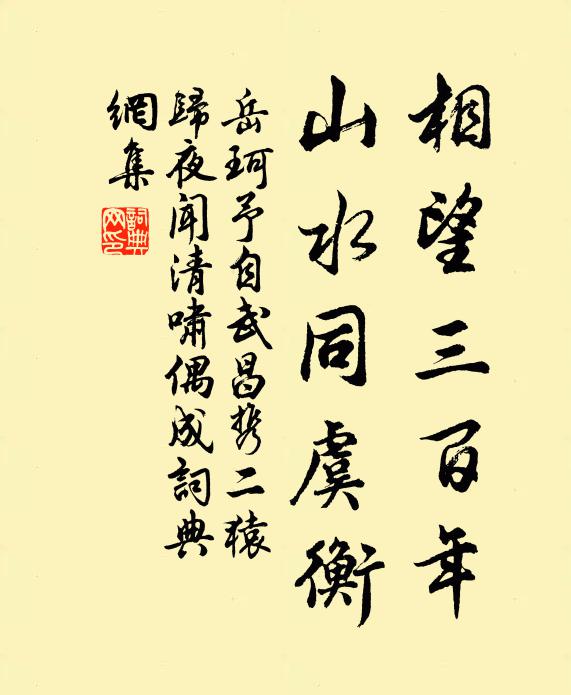 相望三百年
山水同虞衡
岳珂予自武昌携二猿
歸夜闻清啸偶成詞典
網集
詞典
网印